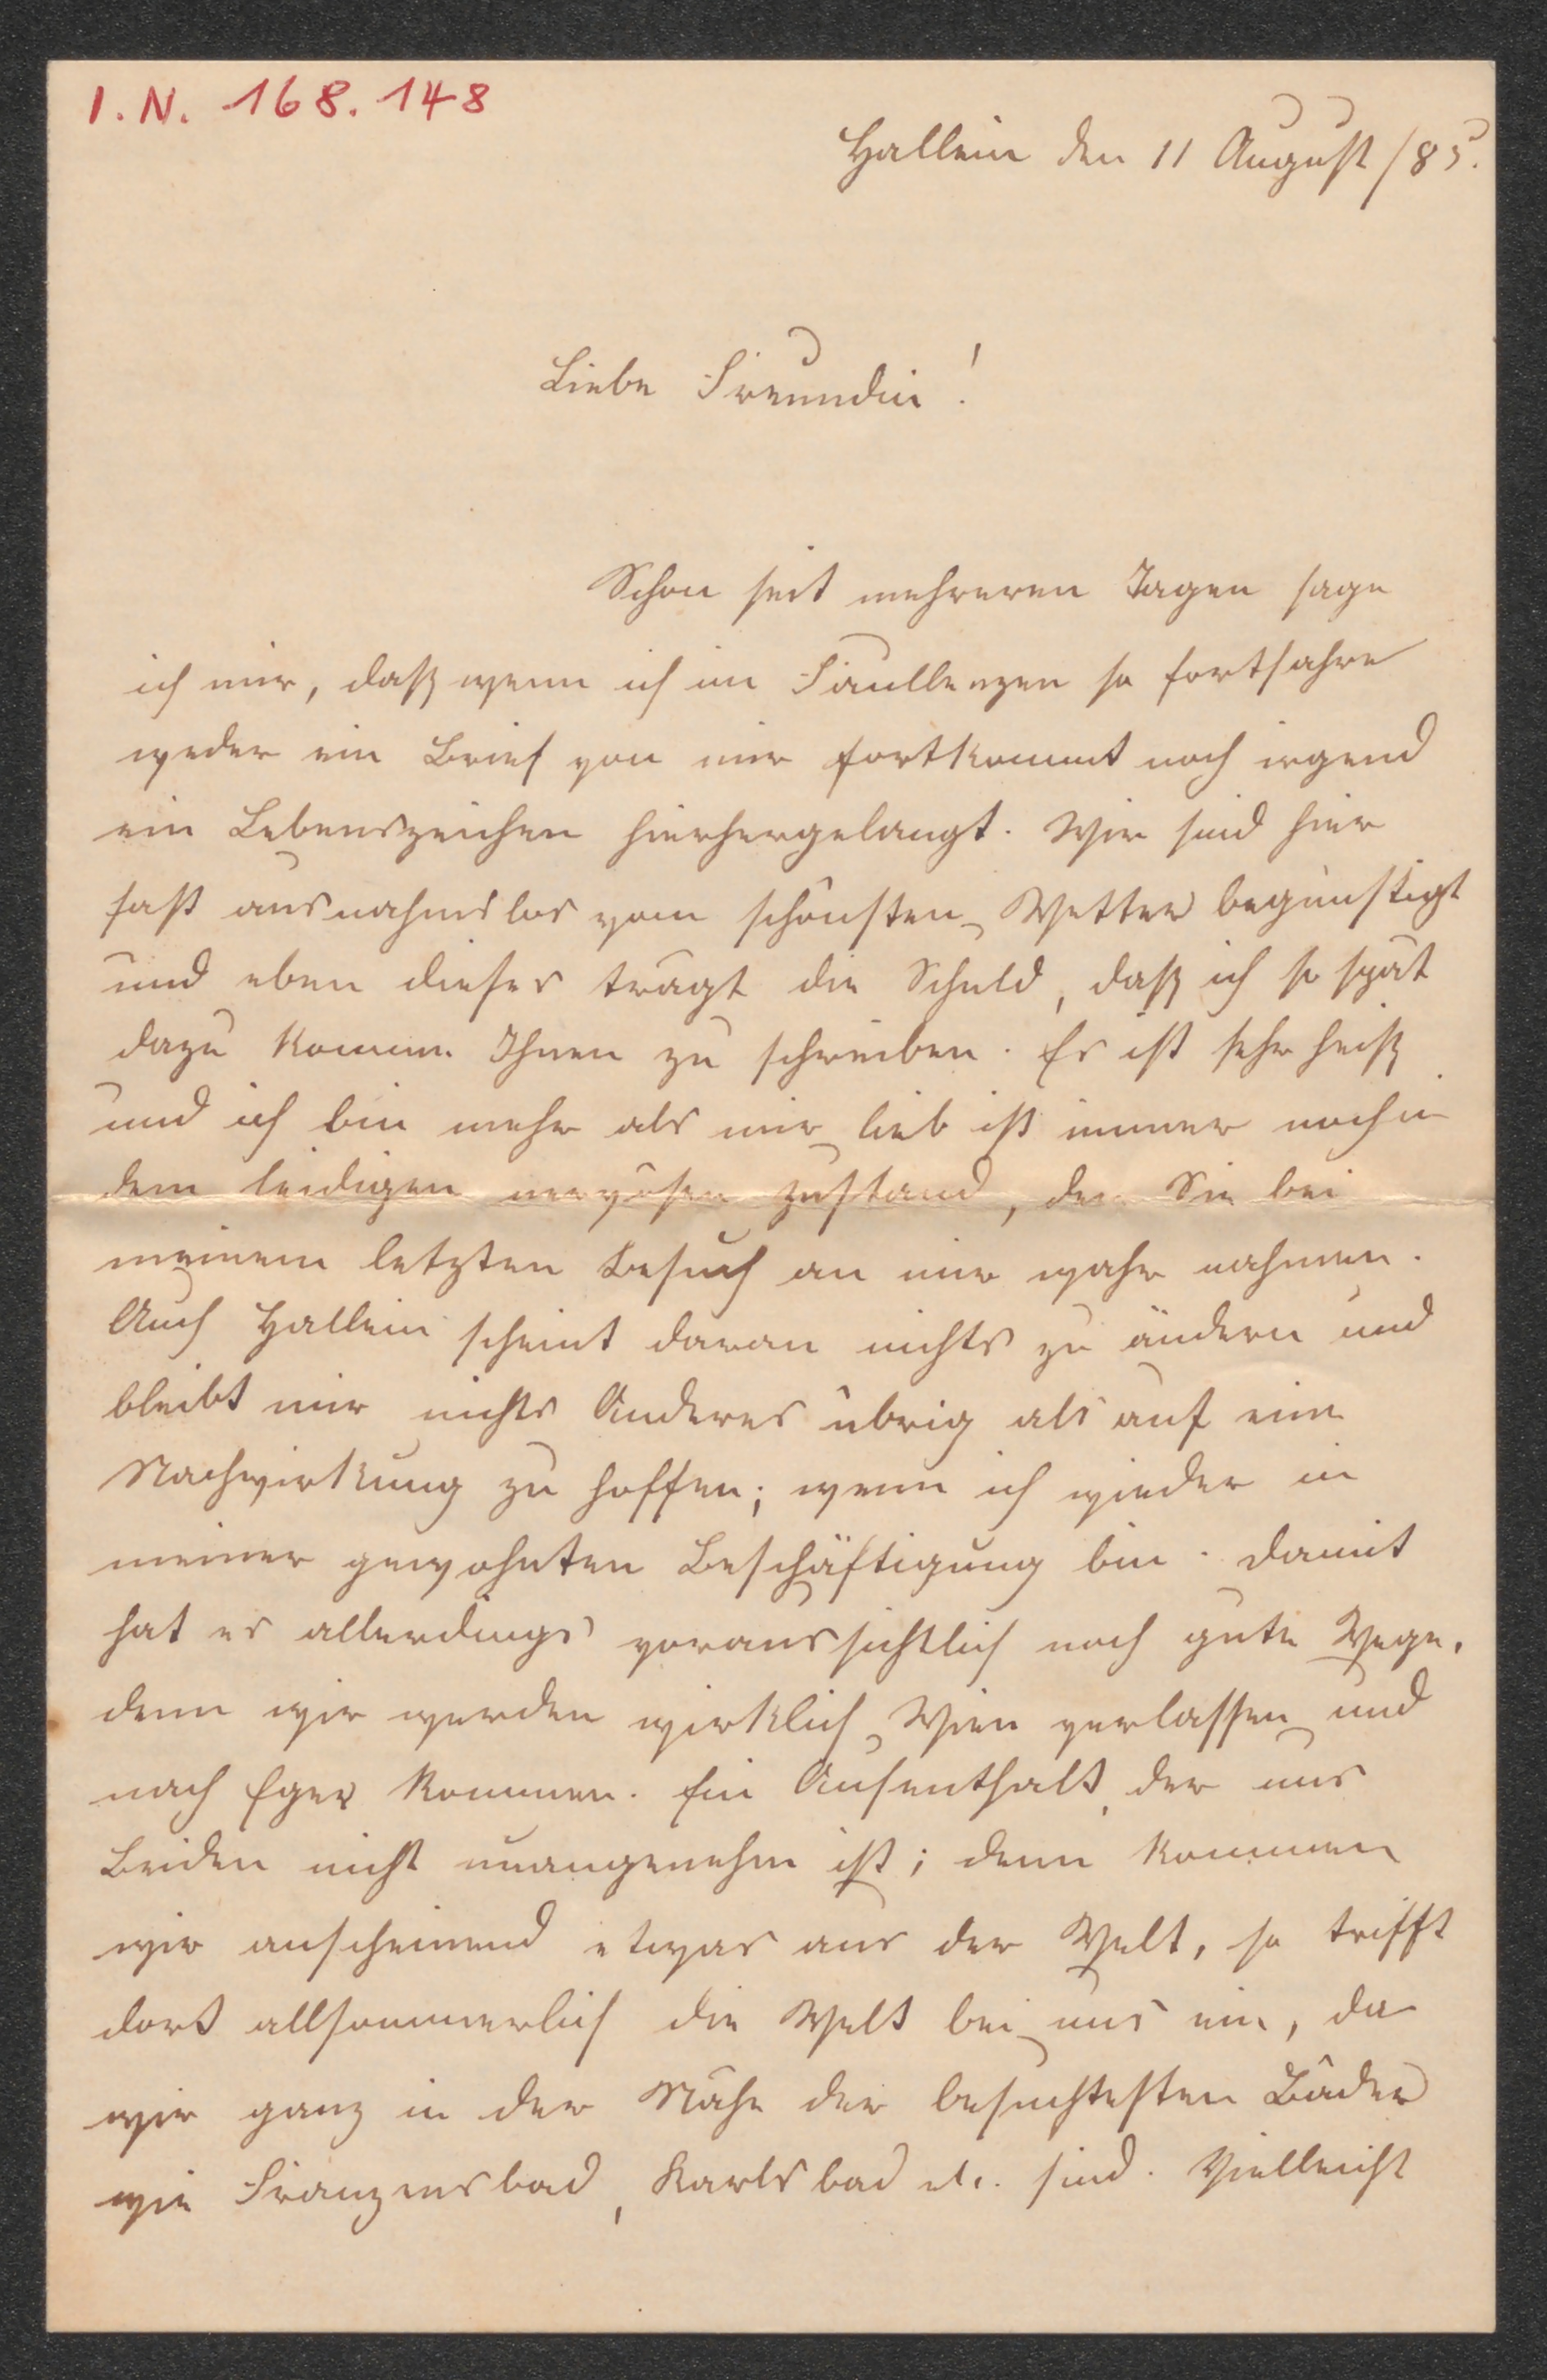 I.N. 168.148
Hallein den 11 August /85.
Liebe Freundin!
Schon seit mehreren Tagen sage
ich mir, daß wenn ich im Faullenzen so fortfahre
weder ein Brief von mir fortkommt noch irgend
ein Lebenszeichen hierhergelangt. Wir sind hier
fast ausnahmslos vom schönsten Wetter begünstigt
und eben dieses trägt die Schuld, daß ich so spät
dazu komme Ihnen zu schreiben. Es ist sehr heiß
und ich bin mehr als mir lieb ist immer noch in
dem leidigen nervösen Zustand, den Sie bei
meinem letzten Besuch an mir wahr nahmen.
Auch Hallein scheint daran nichts zu ändern und
bleibt mir nichts Anderes übrig als auf eine
Nachwirkung zu hoffen; wenn ich wieder in
meiner gewohnten Beschäftigung bin. Damit
hat es allerdings voraussichtlich noch gute Wege,
denn wir werden wirklich Wien verlassen und
nach Eger kommen. Ein Aufenthalt, der uns
Beiden nicht unangenehm ist; denn kommen
wir anscheinend etwas aus der Welt, so trifft
dort allsommerlich die Welt bei uns ein, da
wir ganz in der Nähe der besuchtesten Bäder
wie Franzensbad, Karlsbad etc. sind. Vielleicht